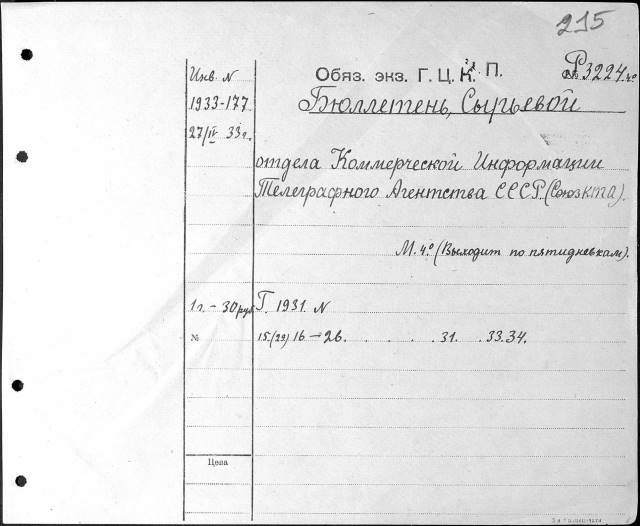 215
Инв. N
Обяз. экз. Г. Ц. К. П.
Р3224 4º
1933-177
Бюллетень, Сырьевой
27/IV 33 г.
отдела Коммерческой Информации
Телеграфного Агентства СССР. (СоюзКТА).
М. 4º (Выходит по пятидневкам).
1 г. - 30 руб.
Г. 1931. N
№
15.(29) 16 - 26. . . . . 31. . 33.34.
Цена